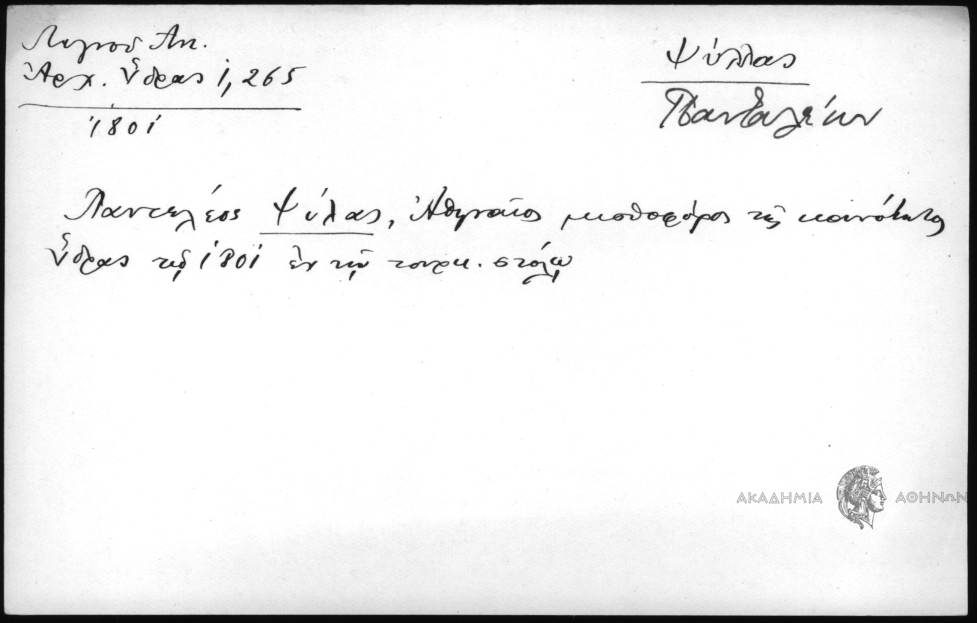 Λιγνού Αντ.
Ἀρχ. Ὕδρας 1, 265
1801
Ψύλλας
Πανταλέων
Παντελέος Ψύλας, Ἀθηναῖος μισθοφόρος τῆς κοινότητος
Ὕδρας τῷ 1801 ἐν τῷ τουρκ. στόλῳ
ΑΚΑΔΗΜΙΑ ΑΘΗΝΩΝ